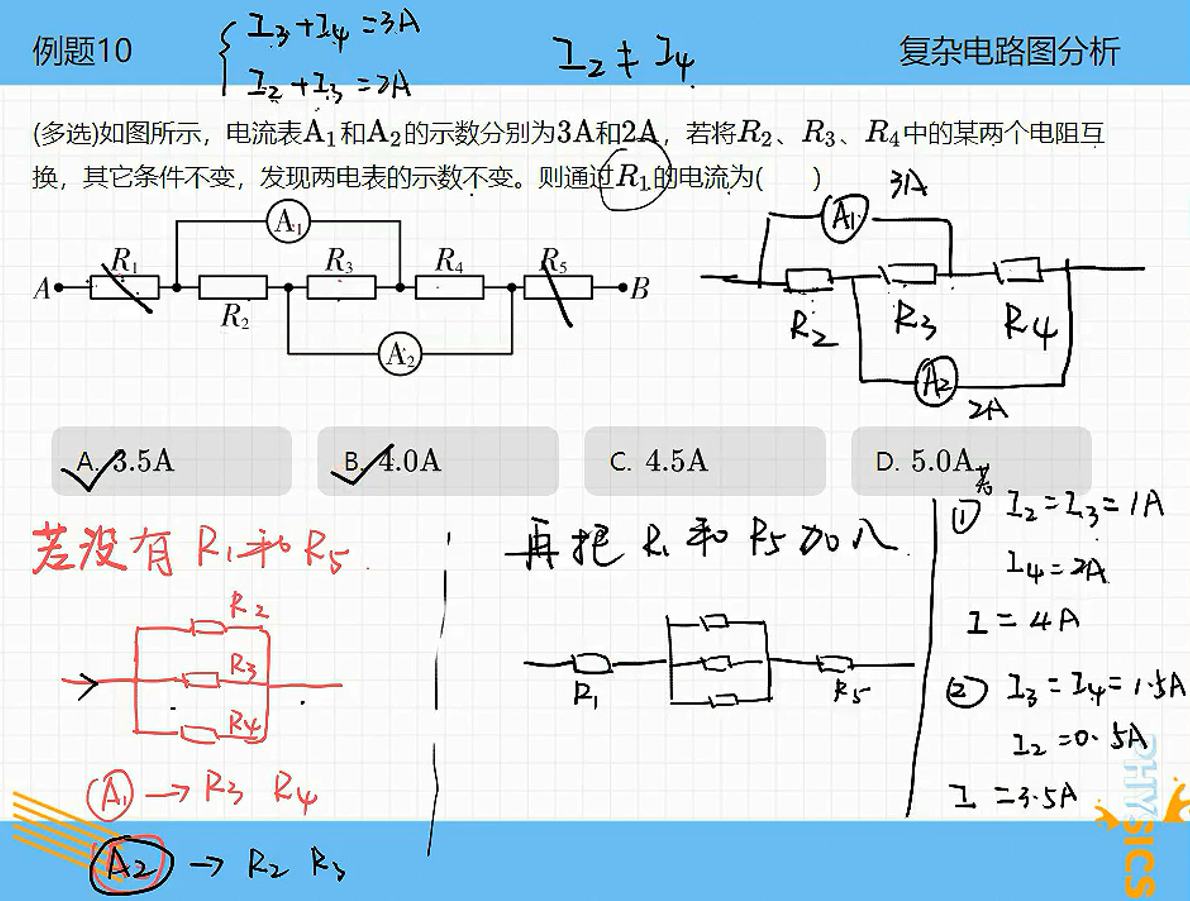 例题10
I₃+I₄=3A
I₂+I₃=2A
I₂≠I₄
复杂电路图分析
(多选)如图所示，电流表A₁和A₂的示数分别为3A和2A，若将R₂、R₃、R₄中的某两个电阻互
换，其它条件不变，发现两电表的示数不变。则通过R₁的电流为(　　)
A₁
A
R₁
R₂
R₃
R₄
R₅
B
A₂
3A
A₁
R₂
R₃
R₄
A₂
2A
A. 3.5A
B. 4.0A
C. 4.5A
D. 5.0A
若没有R₁和R₅
R₂
R₃
R₄
A₁→R₃ R₄
A₂→R₂ R₃
再把R₁和R₅加入
R₁
R₅
若
① I₂=I₃=1A
I₄=2A
I=4A
② I₃=I₄=1.5A
I₂=0.5A
I=3.5A
PHYSICS